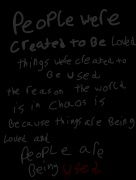 People were
created to Be Loved
things wefe created to
Be used
the reason the world
is in chaos is
Because things are Being
Loved and
People are
Being used